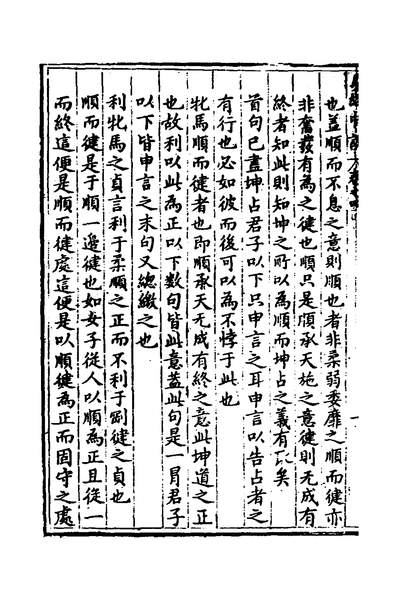 也蓋順而不息之意則順也者非柔弱委靡之順而健亦
非奮發有為之健也順只是順承天施之意健則无成有
終者知此則知坤之所以為順而坤占之義有以矣
首句已盡坤占君子以下只申言之耳申言以告占者之
有行也必如彼而後可以為不悖于此也
牝馬順而健者也即順承天无成有終之意此坤道之正
也故利以此為正以下數句皆此意蓋此句是一冒君子
以下皆申言之末句又總繳之也
利牝馬之貞言利于柔順之正而不利于剛健之貞也
順而健是于順一邊健也如女子從人以順為正且從一
而終這便是順而健處這便是以順健為正而固守之處